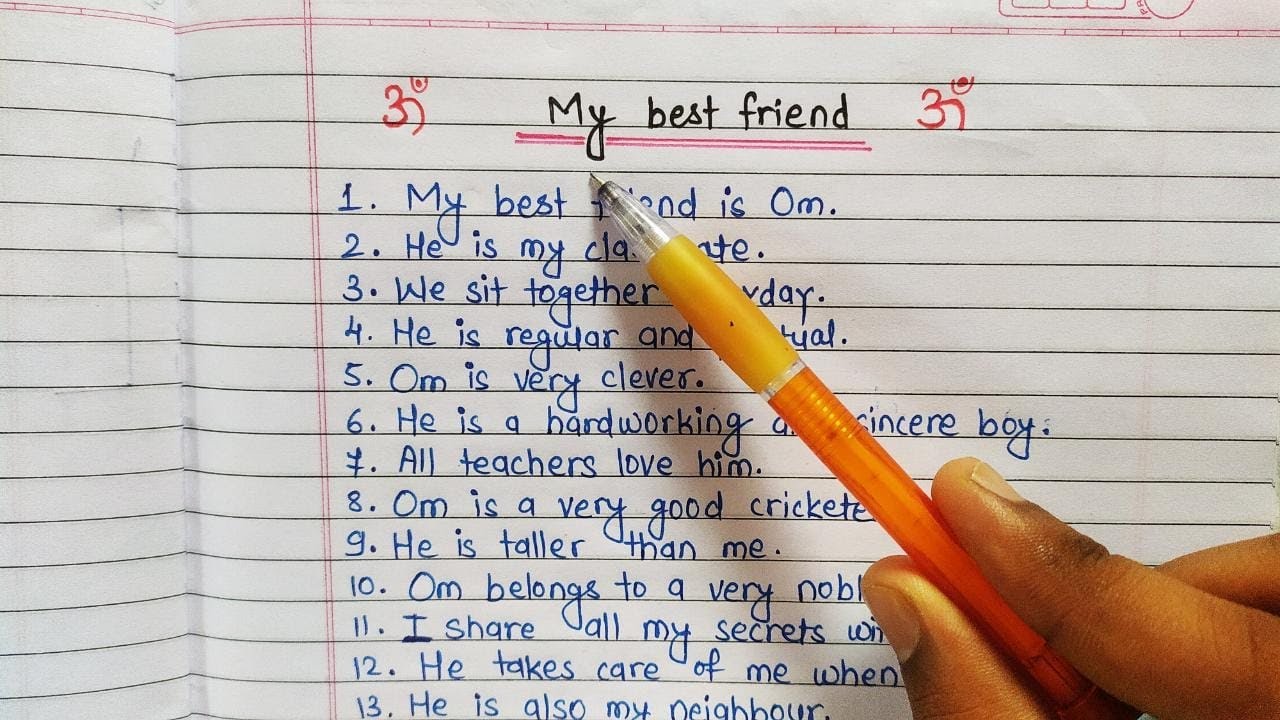 ॐ My best friend ॐ
1. My best friend is Om.
2. He is my classmate.
3. We sit together everyday.
4. He is regular and punctual.
5. Om is very clever.
6. He is a hardworking and sincere boy.
7. All teachers love him.
8. Om is a very good cricketer
9. He is taller than me.
10. Om belongs to a very
11. I share all my secrets
12. He takes care of me when
13. He is also my neighbour.